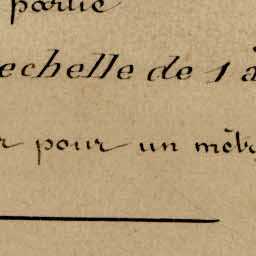 partie
echelle de 1 à
pour un mètr